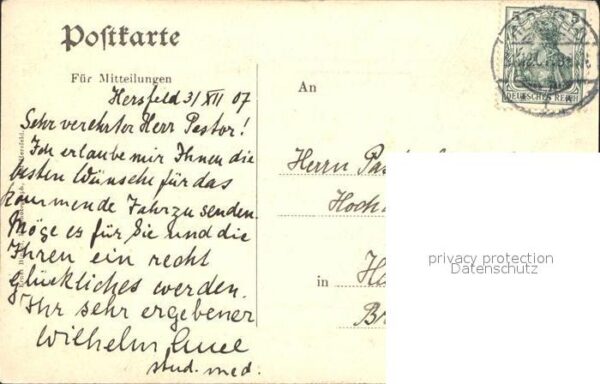 Postkarte
Für Mitteilungen
An
DEUTSCHES REICH
Hersfeld 31/XII 07
Sehr verehrter Herr Pastor!
Ich erlaube mir Ihnen die
besten Wünsche für das
kommende Jahr zu senden.
Möge es für Sie und die
Ihren ein recht
glückliches werden.
Ihr sehr ergebener
Wilhelm
stud. med.
Herrn
in
privacy protection
Datenschutz